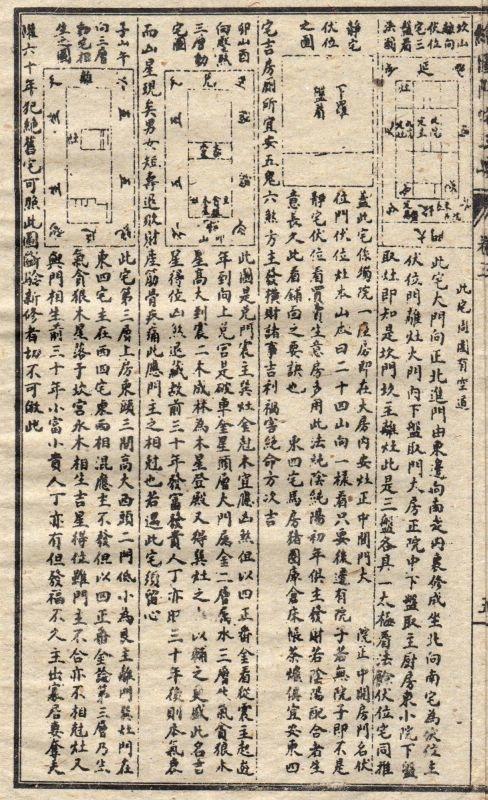 坎山
離向
伏位
宅三
盤看
法圖
延
灶
此宅周圍有空道
此宅大門向正北進門由東邊向南走內裏修成坐北向南宅為伏位主
伏位門離灶大門內下盤取門大房正院中下盤取主厨房東小院下盤
取灶即知是坎門坎主離灶此是三盤各具一太極看法餘伏位宅同推
靜宅
伏位
之圖
下羅
盤看
蓋此宅係獨院一座房即在大房內安灶正中開門大 院正中開房門名伏
位門伏位灶本山店曰二十四山向一樣看只要後邊有院子若無院子即不是
靜宅伏位看買賣生意房多用此法純陰純陽初年俱主發財若陰陽配合者生
意長久此看鋪面之要訣也 東四宅馬房猪圈庫倉床帳茶爐俱宜安東四
宅吉房厠所宜安五鬼六煞方主發橫財諸事吉利禍害絕命方次吉
卯山酉
向壓殺
三層動
宅圖
兌
此圖是兌門震主巽灶金尅木宜應凶煞但以四正喬金看從震主起遊
年到向上兌宮是破軍金星頭層大門屬金二層屬水三層生氣貪狼木
星高大到震二木成林為木星登殿又得巽灶之 以輔之更盛此名吉
星得位凶煞退藏故前三十年發富發貴人丁亦旺三十年後則本氣衰
而山星現矣男女短壽退敗財產筋骨疾痛此應門主之相尅也若遇此宅須留心
子山午
向三層
動宅相
生之圖
離
灶
此宅第三層上房東頭三間高大西頭二門低小為艮主離門巽灶門在
東四宅主在西四宅東西相混應主不發但以四正喬金論第三層乃生
氣貪狼木星落于坎宮水木相生吉星得位雖門主不合亦不相尅灶又
與門相生前三十年小富小貴人丁亦有但發福不久主出寡居妻奪夫
權六十年犯絕舊宅可照此圖斷驗新修者切不可做此